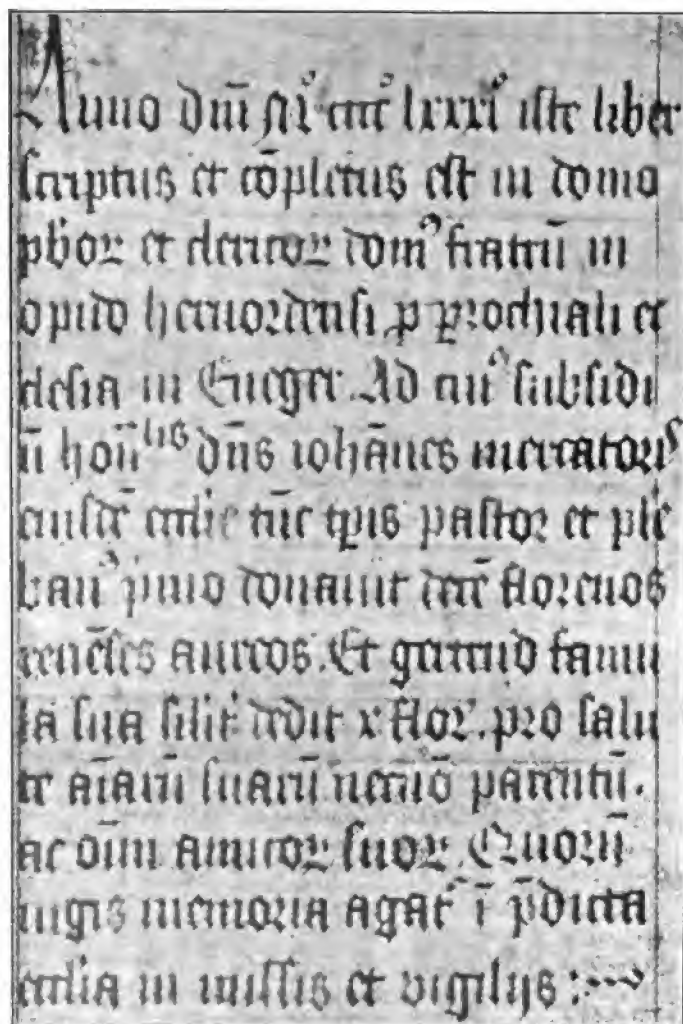 Anno dn̄i Mº cccc̄ lxxxiº iste liber
scriptus et cōpletus est in domo
pb'oꝝ et clericoꝝ domꝰ fratrū in
opido heruordensi ꝓ ꝑrochiali ec
clesia in Eneger. Ad cuiꝰ subsidi
ū hon̄lis dn̄s iohānes mercatoris
eiusdē ecclīe tūc tp̄is pastor et ple
banꝰ pͥmo donauit decē florenos
renēses aureos. Et gertrud famu
la sua silit' dedit x flor'. pro salu
te aīarū suarū necnō parentū.
ac oīm amicoꝝ suoꝝ. Quorū
iugis memoria agat' ī p̄dicta
ecclīa in missis et vigilijs :~